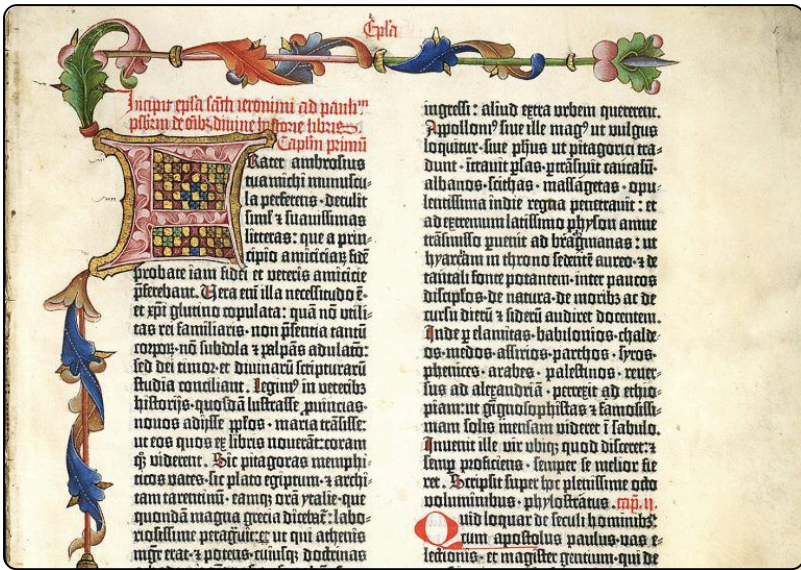 Epl̃a
Incipit epl̃a sancti ieronimi ad paulinum
presbiterum de omnibus divine historie libris.
Capl̃m primũ
Frater ambrosius
tua michi munuscu-
la perferens · detulit
siml̃ ⁊ suavissimas
litteras : que a prin-
cipio amiciciaꝝ fidẽ
probate iam fidei et veteris amicicie
p̃ferebant. Vera em̃ illa necessitudo ẽ ·
et xp̃i glutino copulata : quã nõ utili-
tas rei familiaris · non p̃sentia tantũ
corporũ · nõ subdola ⁊ palpãs adulaco͂ :
sed dei timor · et divinarũ scripturarũ
studia conciliant. Legimꝰ in veteribꝫ
historijs · quosdã lustrasse ꝓvincias ·
novos adijsse pp̃los · maria trãsisse :
ut eos quos ex libris noverãt : coram
qꝫ viderent. Sic pitagoras memphi-
ticos vates · sic plato egiptum · ⁊ archi-
tam tarentinũ · eamqꝫ orã ytalie · que
quondã magna grecia diceba͂t : labo-
riosissime peragravit : et ut qui athenis
mgr̃ erat · ⁊ potens · cuiusqꝫ doctrinas
ingressi : aliud extra urbem quererent.
Appolloniꝰ sive ille magꝰ ut vulgus
loquitur · sive ph̃us ut pitagorici tra-
dunt · itravit ꝑsas · ptrãsivit caucasũ ·
albanos · scithas · massagetas · opu-
lentissima indie regna penetravit : et
ad extremum latissimo physon amne
trãsmisso ꝑvenit ad bragmanas : ut
hyarcam in throno sedentẽ aureo · ⁊ de
tantali fonte potantem · inter paucos
discipl̃os · de natura · de moribꝫ ac de
cursu dierũ ⁊ siderũ audiret docentem.
Inde ꝑ elamitas · babilonios · chalde-
os · medos · assirios · parthos · syros ·
phenices · arabes · palestinos · rever-
sus ad alexandriã · perrexit ad ethio-
piam : ut gignosophistas ⁊ famosissi-
mam solis mensam videret ĩ sabulo.
Invenit ille vir ubiqꝫ quod disceret : ⁊
semꝑ proficiens · semper se melior fie-
ret. Scripsit super hoc plenissime octo
voluminibus · phylostratus . cap. ii.
Quid loquar de seculi hominibꝫ :
cum apostolus paulus · vas e-
lectionis · et magister gentium · qui de